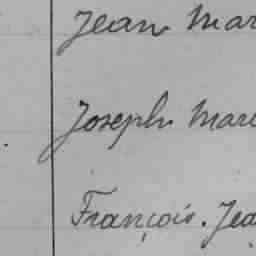 Jean Mar
Joseph Mar
François. Jea